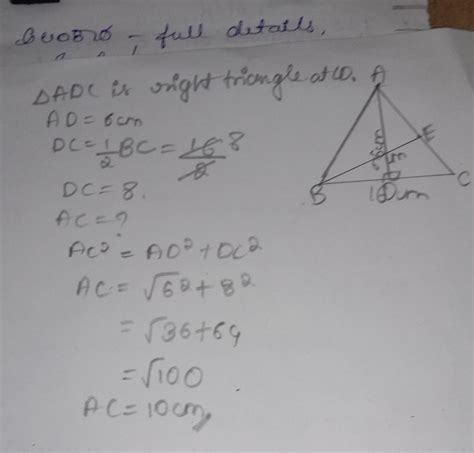 ; full details,
△ADC is right triangle at D.
AD = 6cm
DC = 1/2 BC = 16/2 8
DC = 8.
AC = ?
AC² = AD² + DC²
AC = √6² + 8²
= √36+64
= √100
AC = 10cm,
A
E
B
C